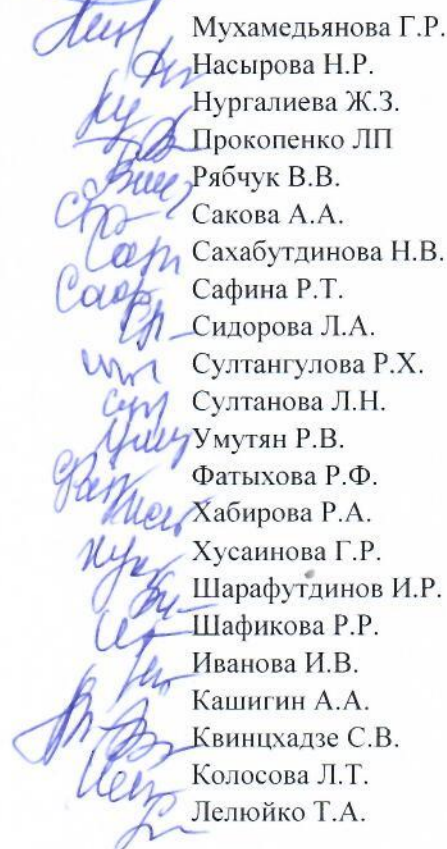 Мухамедьянова Г.Р.
Насырова Н.Р.
Нургалиева Ж.З.
Прокопенко ЛП
Рябчук В.В.
Сакова А.А.
Сахабутдинова Н.В.
Сафина Р.Т.
Сидорова Л.А.
Султангулова Р.Х.
Султанова Л.Н.
Умутян Р.В.
Фатыхова Р.Ф.
Хабирова Р.А.
Хусаинова Г.Р.
Шарафутдинов И.Р.
Шафикова Р.Р.
Иванова И.В.
Кашигин А.А.
Квинцхадзе С.В.
Колосова Л.Т.
Лелюйко Т.А.